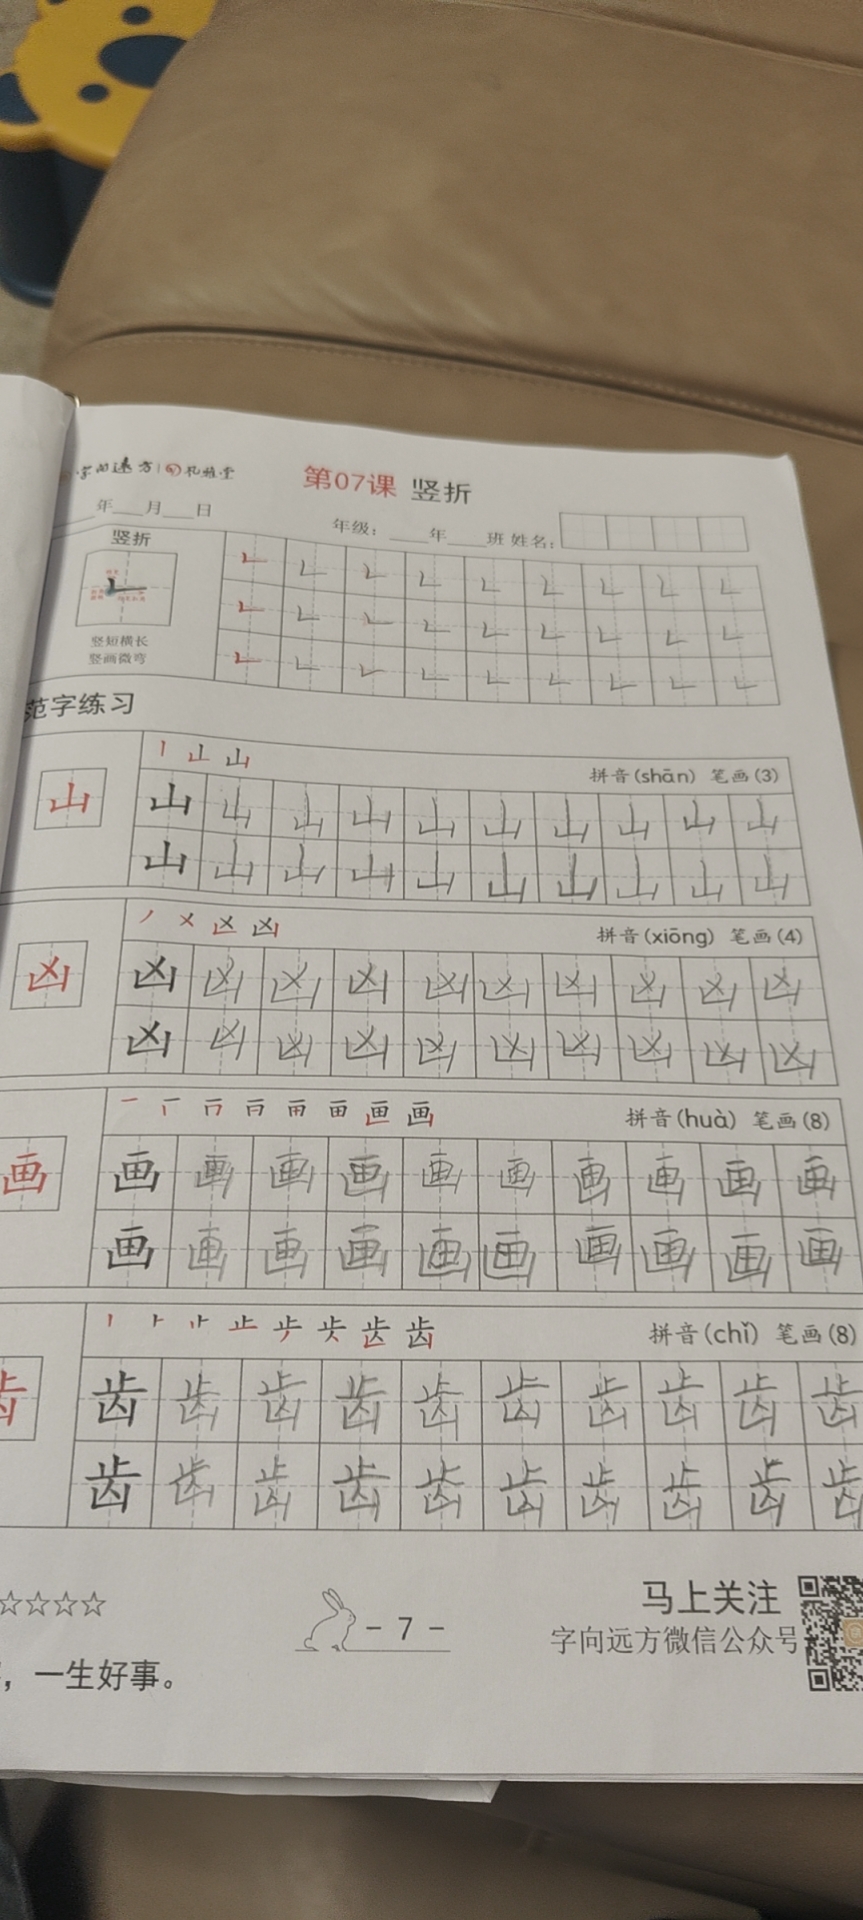 字向远方 礼雅堂
第07课 竖折
年___月___日
年级：____年____班 姓名：
竖折
竖短横长
竖画微弯
范字练习
拼音(shān) 笔画(3)
山 山 山 山 山 山 山 山 山 山 山
山 山 山 山 山 山 山 山 山 山
拼音(xiōng) 笔画(4)
凶 凶 凶 凶 凶 凶 凶 凶 凶 凶 凶
凶 凶 凶 凶 凶 凶 凶 凶 凶 凶
拼音(huà) 笔画(8)
画 画 画 画 画 画 画 画 画 画 画
画 画 画 画 画 画 画 画 画 画
拼音(chǐ) 笔画(8)
齿 齿 齿 齿 齿 齿 齿 齿 齿 齿 齿
齿 齿 齿 齿 齿 齿 齿 齿 齿 齿
☆☆☆☆
，一生好事。
- 7 -
马上关注
字向远方微信公众号